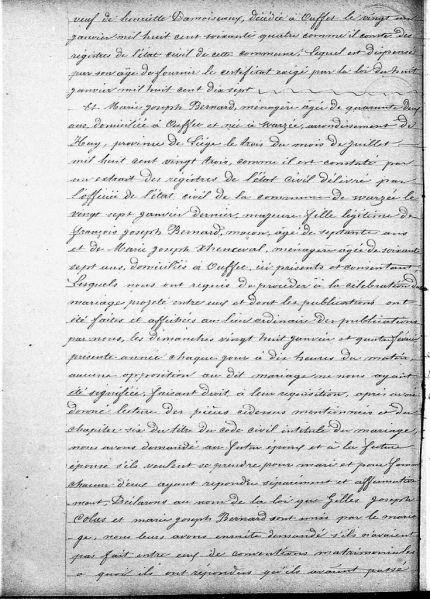 veuf de henriette Damoiseaux, décédée à Ouffet le vingt un
janvier mil huit cent soixante quatre comme il conste des
registres de l'état civil de cette commune; Lequel est dispensé
par son âge de fournir le certificat exigé par la loi du huit
janvier mil huit cent dix sept
Et Marie Joseph Bernard, ménagère agée de quarante deux
ans domiciliée à Ouffet et née à Warzée, arrondissement de
Huy, province de Liège le trois du mois de juillet
mil huit cent vingt trois, comme il est constaté par
un extrait des registres de l'état Civil délivré par
l'officier de l'état civil de la commune de warzée le
vingt sept janvier dernier, majeure fille légitime de
françois Joseph Bernard, maçon, agé de septante ans
et de Marie Joseph, ménagère agée de soixante
sept ans, domiciliés à Ouffet, ici présents et consentans
Lesquels nous ont requis de procéder à la célébration du
mariage projeté entre eux et dont les publications ont
été faites et affichées au lieu ordinaire des publications
par nous, les dimanches vingt huit janvier et quatre février
présente année chaque jour à dix heures du matin,
aucune opposition au dit mariage ne nous ayant
été signifiée, faisant droit à leur réquisition, après avoir
donné lecture des pièces cidessus mentionnées et du
chapitre six du titre du code civil intitulé du mariage,
nous avons demandé au futur époux et à la future
épouse s'ils veulent se prendre pour mari et pour femme
chacun d'eux ayant répondu séparément et affirmative
ment, Déclarons au nom de la loi que Gilles Joseph
Colus et marie Joseph Bernard sont unis par le maria
ge, nous leurs avons ensuite demandé s'ils n'avaient
pas fait entre eux de conventions matrimoniales
à quoi ils ont répondu qu'ils avaient passé